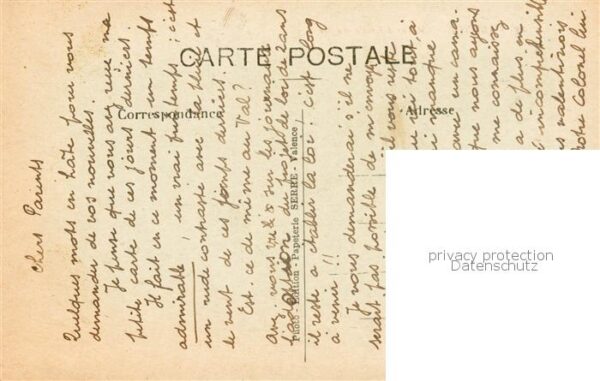 CARTE POSTALE
Correspondance
Adresse
Photo-Edition - Papeterie SERRE - Valence
Chers Parents
Quelques mots en hâte pour vous
demander de vos nouvelles.
Je pense que vous avez reçu ma
petite carte de ces jours derniers.
Il fait en ce moment un temps
admirable un vrai printemps ; c'est
un rude contraste avec la pluie et
le vent de ces jours derniers.
Est-ce de même au Val ?
Avez vous vu sur les journaux
du projet de loi de 2 ans
il reste à établir la loi : c'est long
à venir !!
Je vous demanderai s'il ne
serait pas possible de m'envoyer
si vous
qui
manque
avec un cama-
que nous ayons
me connaissez
a de plus en
incompréhensible
valentinois
notre Colonel lui
privacy protection
Datenschutz